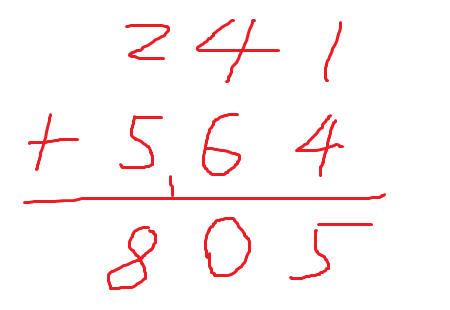 241
+ 564
805